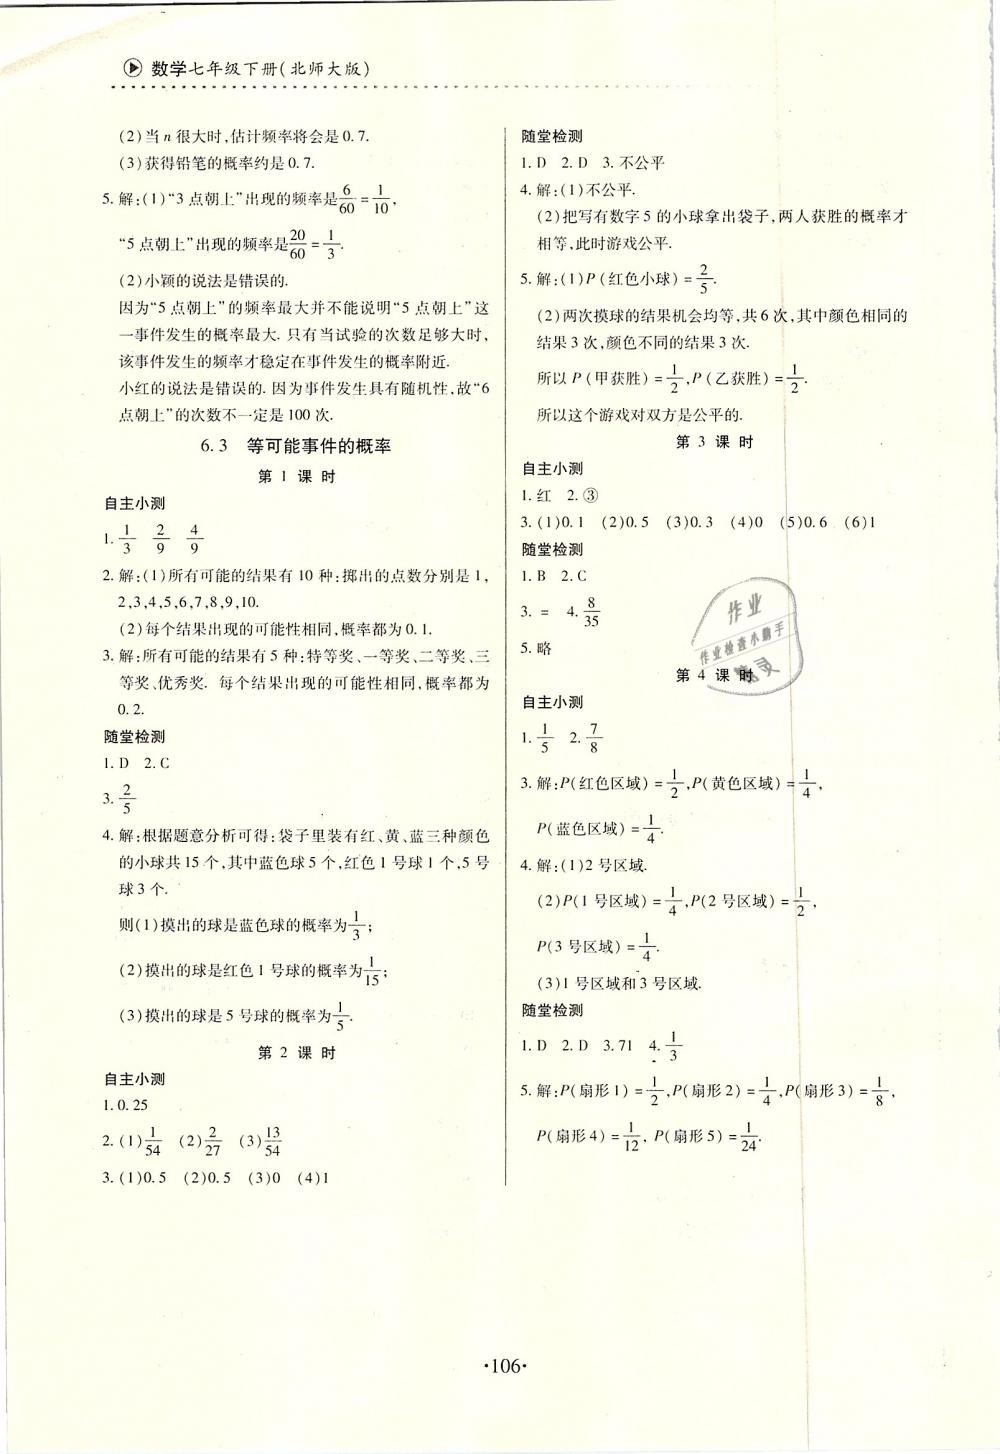 数学七年级下册(北师大版)
(2)当 n 很大时,估计频率将会是 0.7.
(3)获得铅笔的概率约是 0.7.
5. 解:(1)“3 点朝上”出现的频率是6/60=1/10,
“5 点朝上”出现的频率是20/60=1/3.
(2)小颖的说法是错误的.
因为“5 点朝上”的频率最大并不能说明“5 点朝上”这
一事件发生的概率最大. 只有当试验的次数足够大时,
该事件发生的频率才稳定在事件发生的概率附近.
小红的说法是错误的. 因为事件发生具有随机性,故“6
点朝上”的次数不一定是 100 次.
6.3 等可能事件的概率
第 1 课时
自主小测
1. 1/3 2/9 4/9
2. 解:(1)所有可能的结果有 10 种:掷出的点数分别是 1,
2,3,4,5,6,7,8,9,10.
(2)每个结果出现的可能性相同,概率都为 0.1.
3. 解:所有可能的结果有 5 种:特等奖、一等奖、二等奖、三
等奖、优秀奖. 每个结果出现的可能性相同,概率都为
0.2.
随堂检测
1. D 2. C
3. 2/5
4. 解:根据题意分析可得:袋子里装有红、黄、蓝三种颜色
的小球共 15 个,其中蓝色球 5 个,红色 1 号球 1 个,5 号
球 3 个.
则(1)摸出的球是蓝色球的概率为1/3;
(2)摸出的球是红色 1 号球的概率为1/15;
(3)摸出的球是 5 号球的概率为1/5.
第 2 课时
自主小测
1. 0.25
2. (1)1/54 (2)2/27 (3)13/54
3. (1)0.5 (2)0.5 (3)0 (4)1
随堂检测
1. D 2. D 3. 不公平
4. 解:(1)不公平.
(2)把写有数字 5 的小球拿出袋子,两人获胜的概率才
相等,此时游戏公平.
5. 解:(1)P(红色小球)=2/5.
(2)两次摸球的结果机会均等,共 6 次,其中颜色相同的
结果 3 次,颜色不同的结果 3 次.
所以 P(甲获胜)=1/2,P(乙获胜)=1/2.
所以这个游戏对双方是公平的.
第 3 课时
自主小测
1. 红 2. ③
3. (1)0.1 (2)0.5 (3)0.3 (4)0 (5)0.6 (6)1
随堂检测
1. B 2. C
3. = 4. 8/35
5. 略
作业
作业检查小助手
第 4 课时
自主小测
1. 1/5 2. 7/8
3. 解:P(红色区域)=1/2,P(黄色区域)=1/4,
P(蓝色区域)=1/4.
4. 解:(1)2 号区域.
(2)P(1 号区域)=1/4,P(2 号区域)=1/2,
P(3 号区域)=1/4.
(3)1 号区域和 3 号区域.
随堂检测
1. D 2. D 3. 71 4. 1/3
5. 解:P(扇形 1)=1/2,P(扇形 2)=1/4,P(扇形 3)=1/8,
P(扇形 4)=1/12, P(扇形 5)=1/24.
·106·